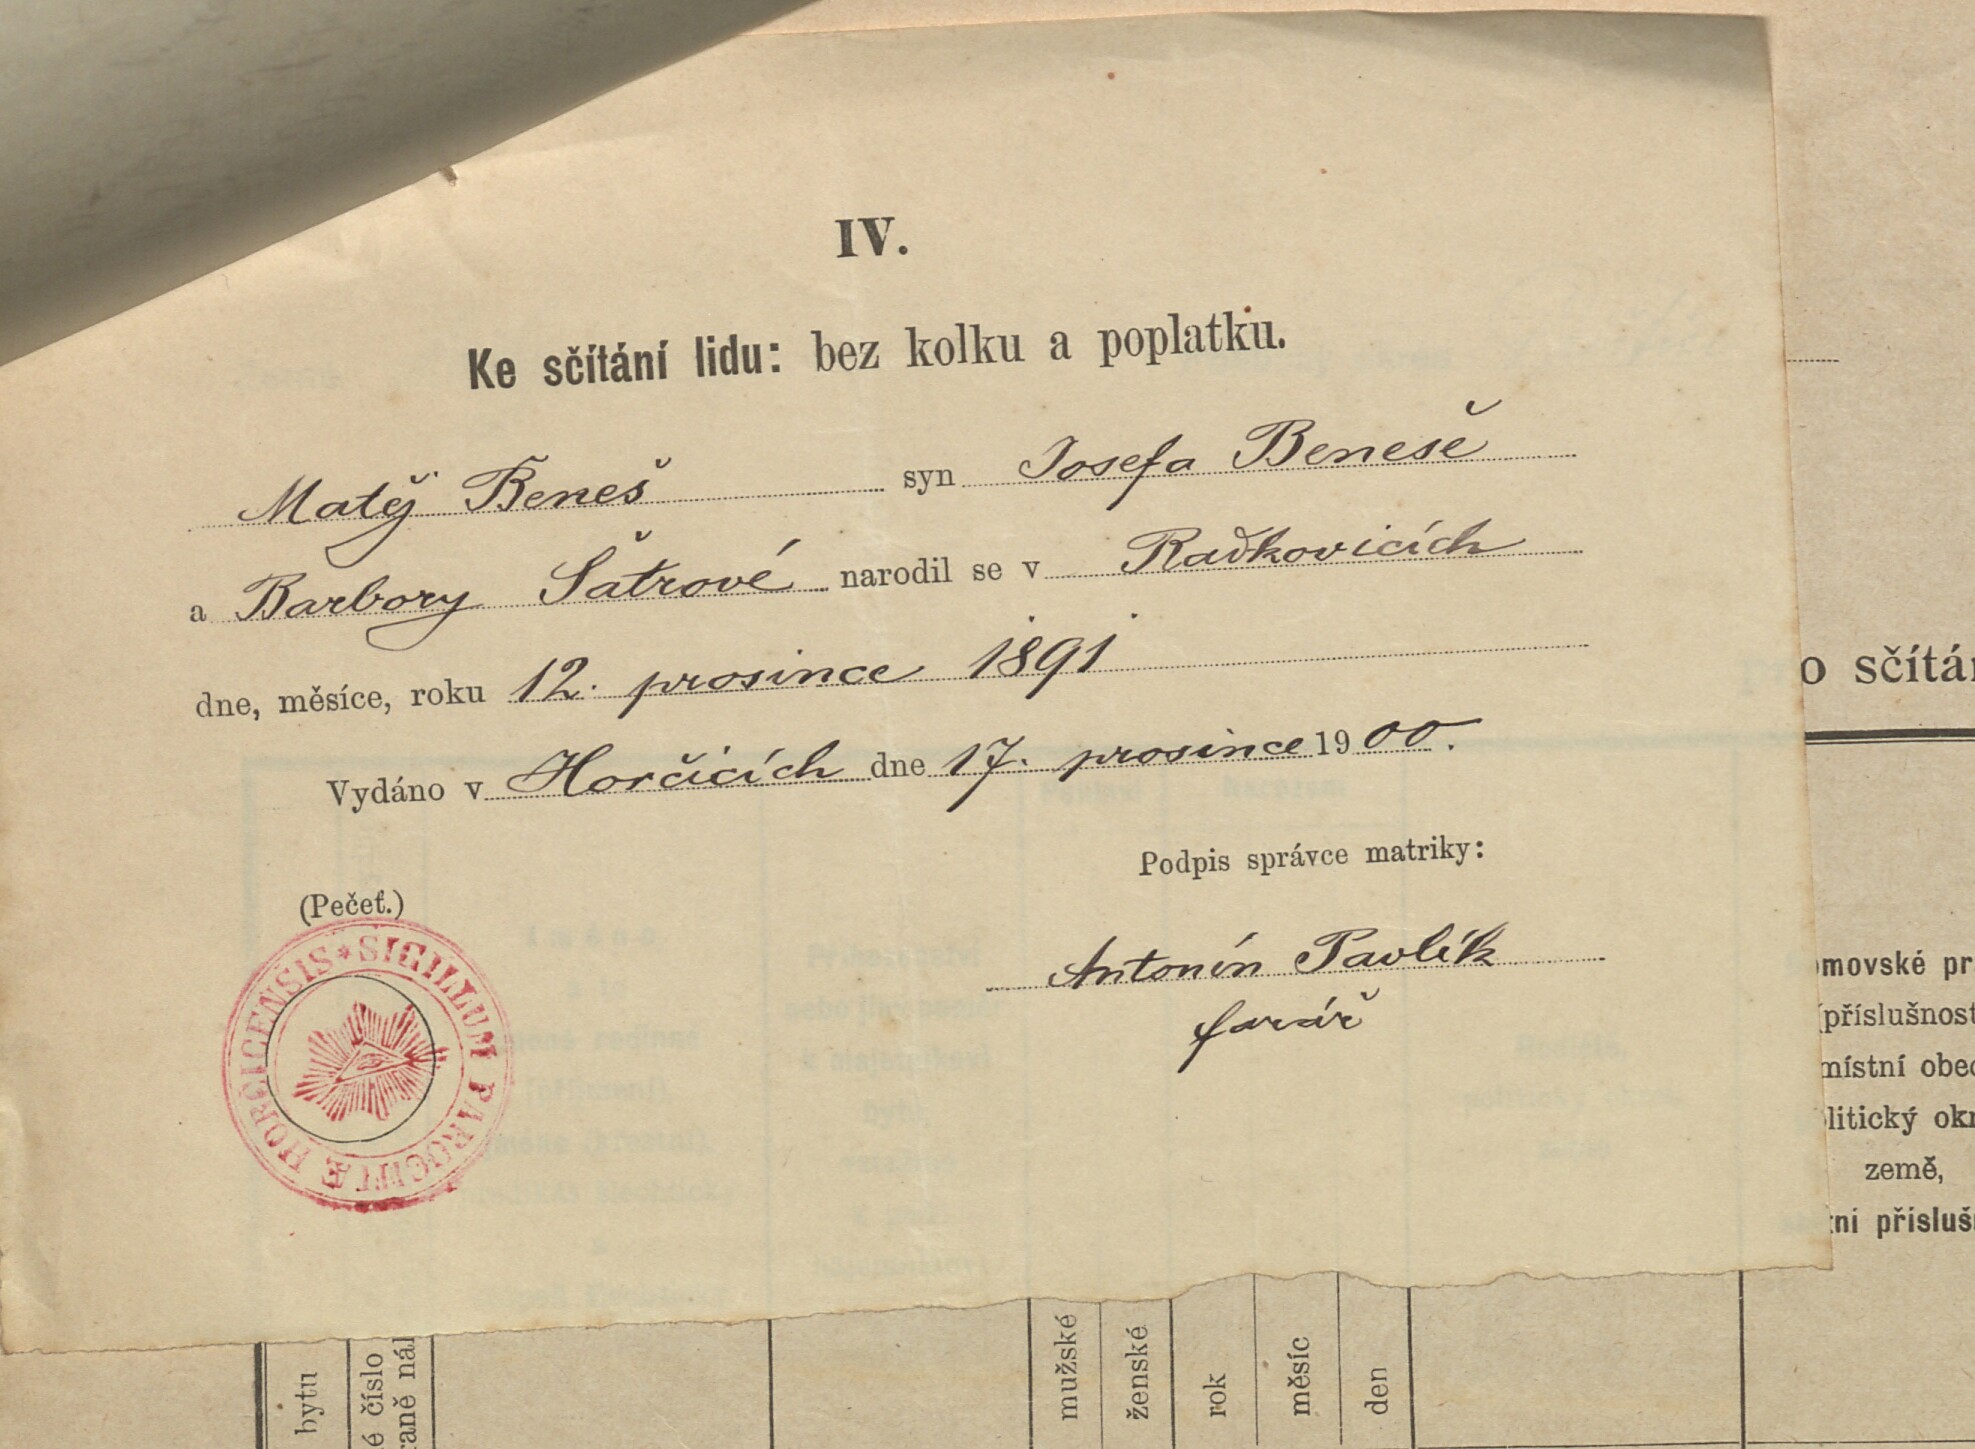 IV.
Ke sčítání lidu: bez kolku a poplatku.
Matěj Beneš syn Josefa Beneše
a Barbory Šatrové narodil se v Raďkovicích
dne, měsíce, roku 12. prosince 1891
Vydáno v Horčicích dne 17. prosince 1900.
Podpis správce matriky:
(Pečeť.)
Antonín Pavlík
farář
SIGILLUM PAROCHIÆ HORČICENSIS *
o sčítá
movské pr
(příslušnost
místní obec
litický okr
země,
ní přísluš
bytu
é číslo
raně nál
mužské
ženské
rok
měsíc
den